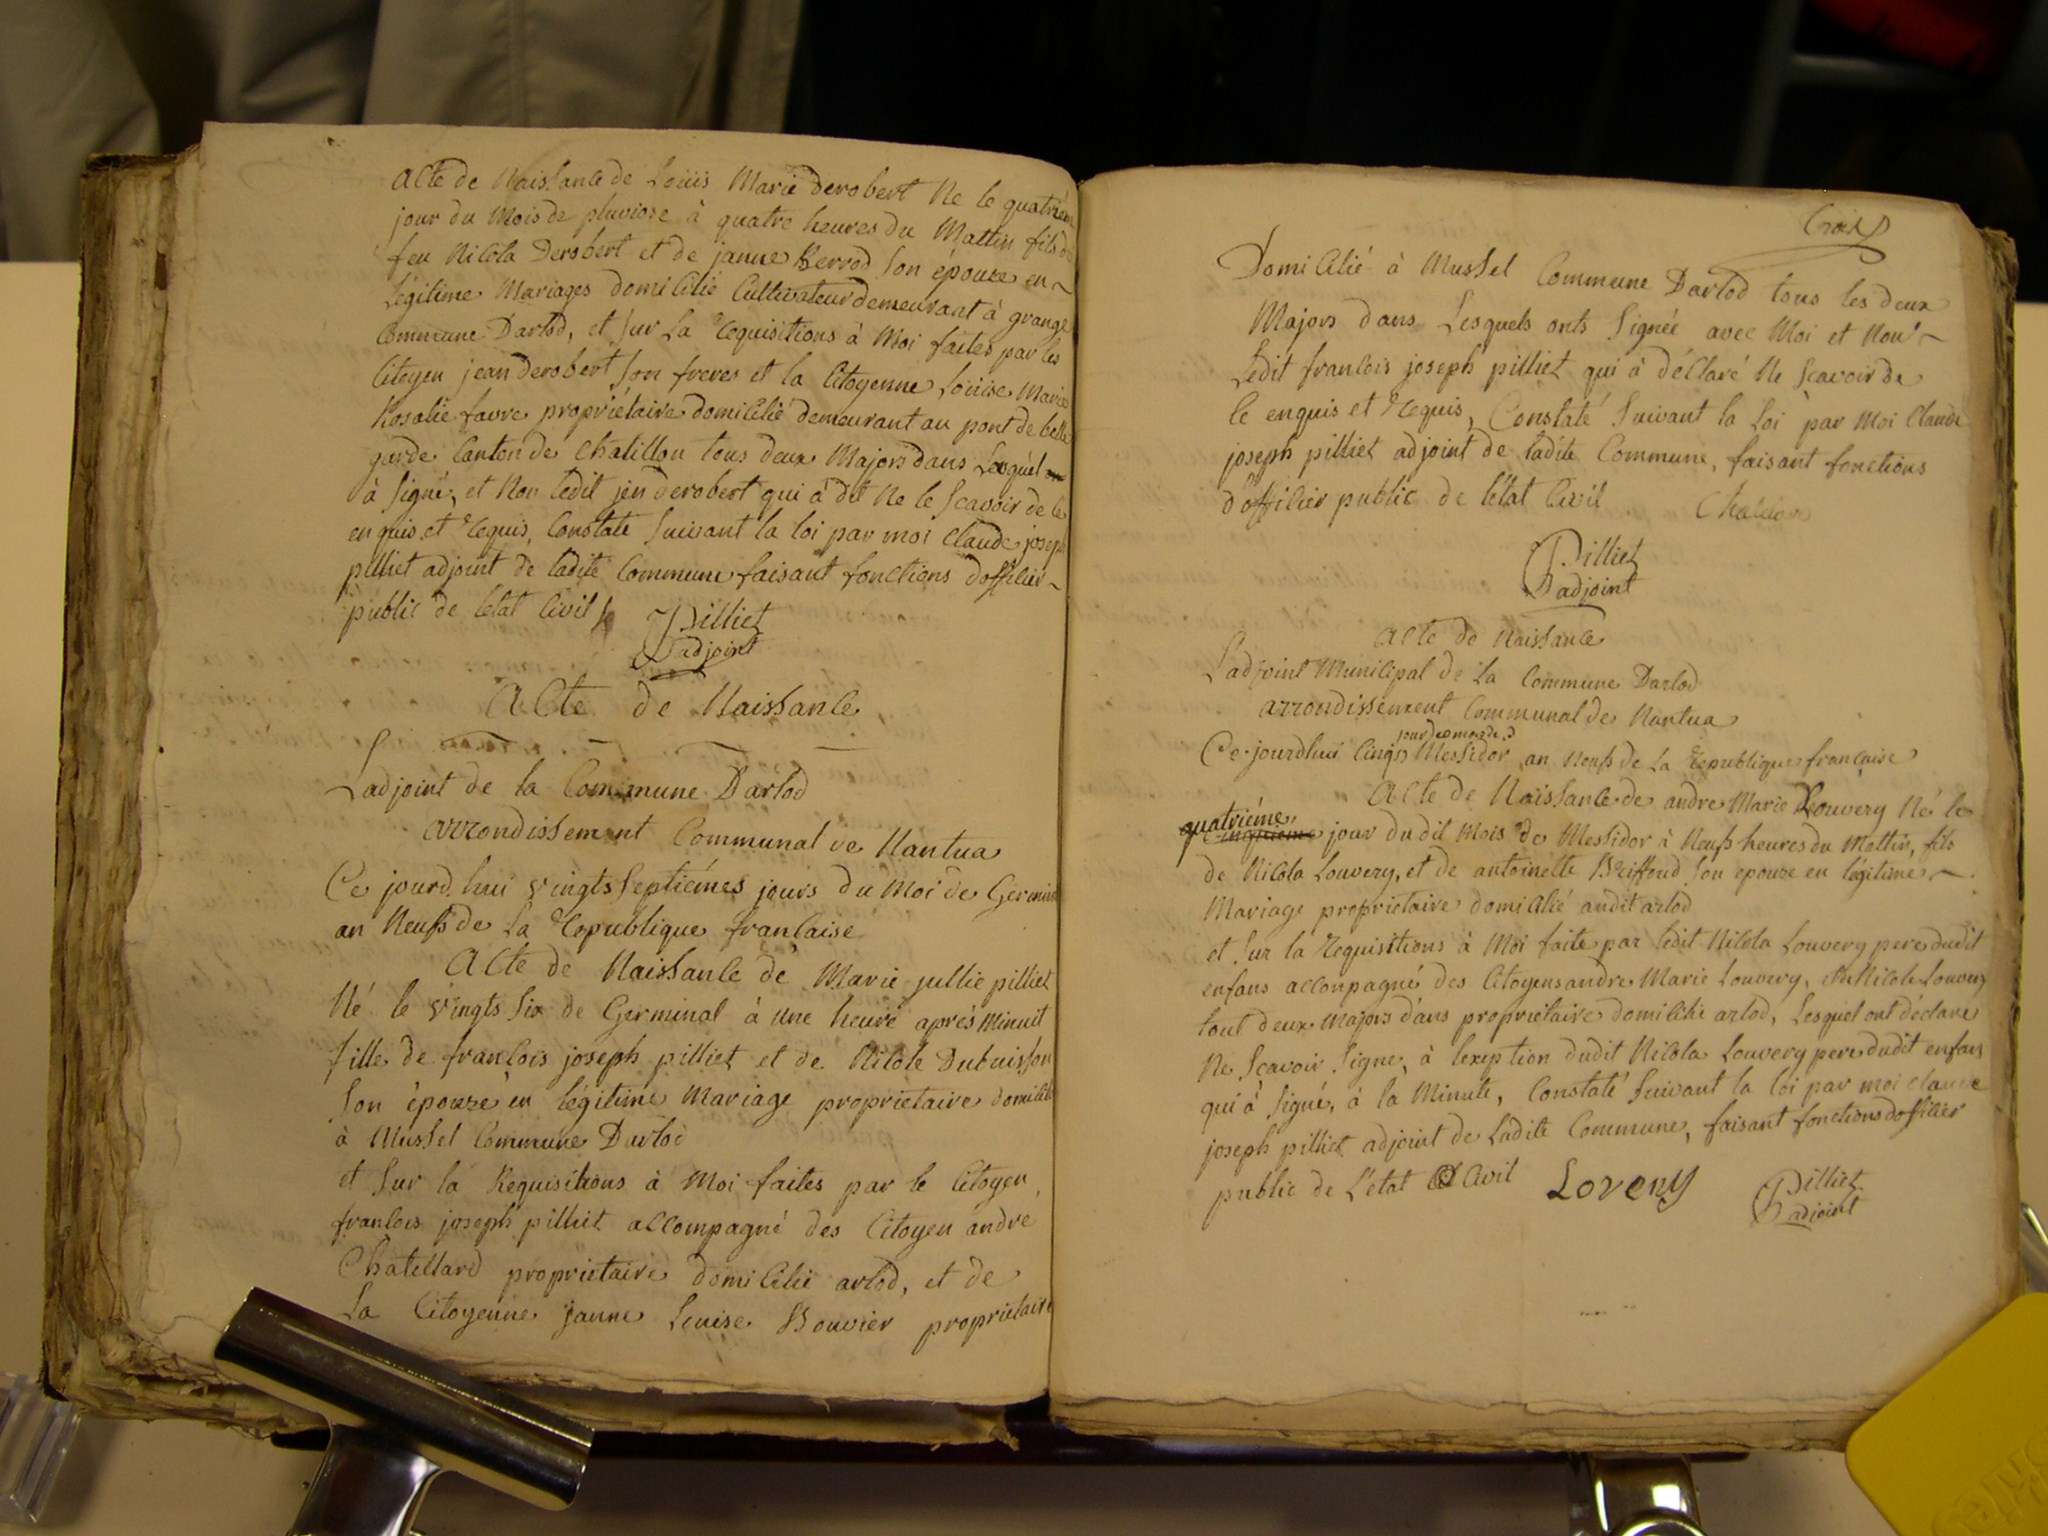 Acte de Naissance de Louis Marie derobert Ne le quatriem
jour du Mois de pluviose à quatre heures du Mattin fils de
feu Nicola Derobert et de janne Berrod son épouze en
Légitime Mariages domicilié Cultivateur demeurant à grange
Commune Darlod, et sur La requisitions à Moi faites par les
Citoyen jean derobert son freres et la Citoyenne Louise Marie
Rosalie favre propriétaire domicilié demeurant au pont de belle
garde Canton de Chatillon tous deux Majors dans Lesquel
à signé, et Non ledit jen derobert qui à dit Ne le scavoir de ce
enquis et requis, Constaté suivant la loi par moi Claude joseph
pilliet adjoint de ladite Commune faisant fonctions dofficier
public de letat Civil
Pilliet
adjoint
Acte de Naissance
Ladjoint de la Commune Darlod
arrondissement Communal de Nantua
Ce jourd'hui vingts septiémes jours du Moi de Germinal
an Neufs de La republique francaise
Acte de Naissance de Marie jullie pilliet
Né le vingts six de Germinal à une heure aprés Minuit
fille de francois joseph pilliet et de Nicole Dubuisson
son épouze en légitime Mariage proprietaire domicilié
à Mussel Commune Darlod
et sur la Requisitions à Moi faites par le Citoyen
francois joseph pilliet accompagné des Citoyen andre
Chatellard proprietaire domicilié arlod, et de
La Citoyenne janne Louise Bouvier proprietaire
trois
Domicilié à Mussel Commune Darlod tous les deux
Majors dans Lesquels onts signée avec Moi et Non
Ledit francois joseph pilliet qui à déclaré Ne scavoir de
ce enquis et requis, Constaté suivant la Loi par Moi Claude
joseph pilliet adjoint de ladite Commune, faisant fonctions
d'officier public de l'état Civil
Pilliet
adjoint
Acte de Naissance
Ladjoint Municipal de La Commune Darlod
arrondissement Communal de Nantua
jour du mois de
Ce jourdhui Cinq Messidor an Neufs de La republique française
Acte de Naissance de andre Marie Louvery Né le
quatriéme
cinquieme jour dudit Mois de Messidor à Neufs heures du Mattin, fils
de Nicola Louvery, et de antoinette Briffond son epouze en légitime
Mariage proprietaire domicilié audit arlod
et sur la requisitions à Moi faite par ledit Nicola Louvery pere dudit
enfans accompagné des Citoyens andre Marie Louvery, Nicole Louvery
tout deux Majors dans proprietaire domicilié arlod, Lesquel ont déclaré
Ne scavoir signe, à lexeption dudit Nicola Louvery pere dudit enfans
qui à signé, à la Minute, Constaté suivant la loi par moi claude
joseph pilliet adjoint de Ladite Commune, faisant fonctions dofficier
public de L'état Civil Lovery Pilliet
adjoint